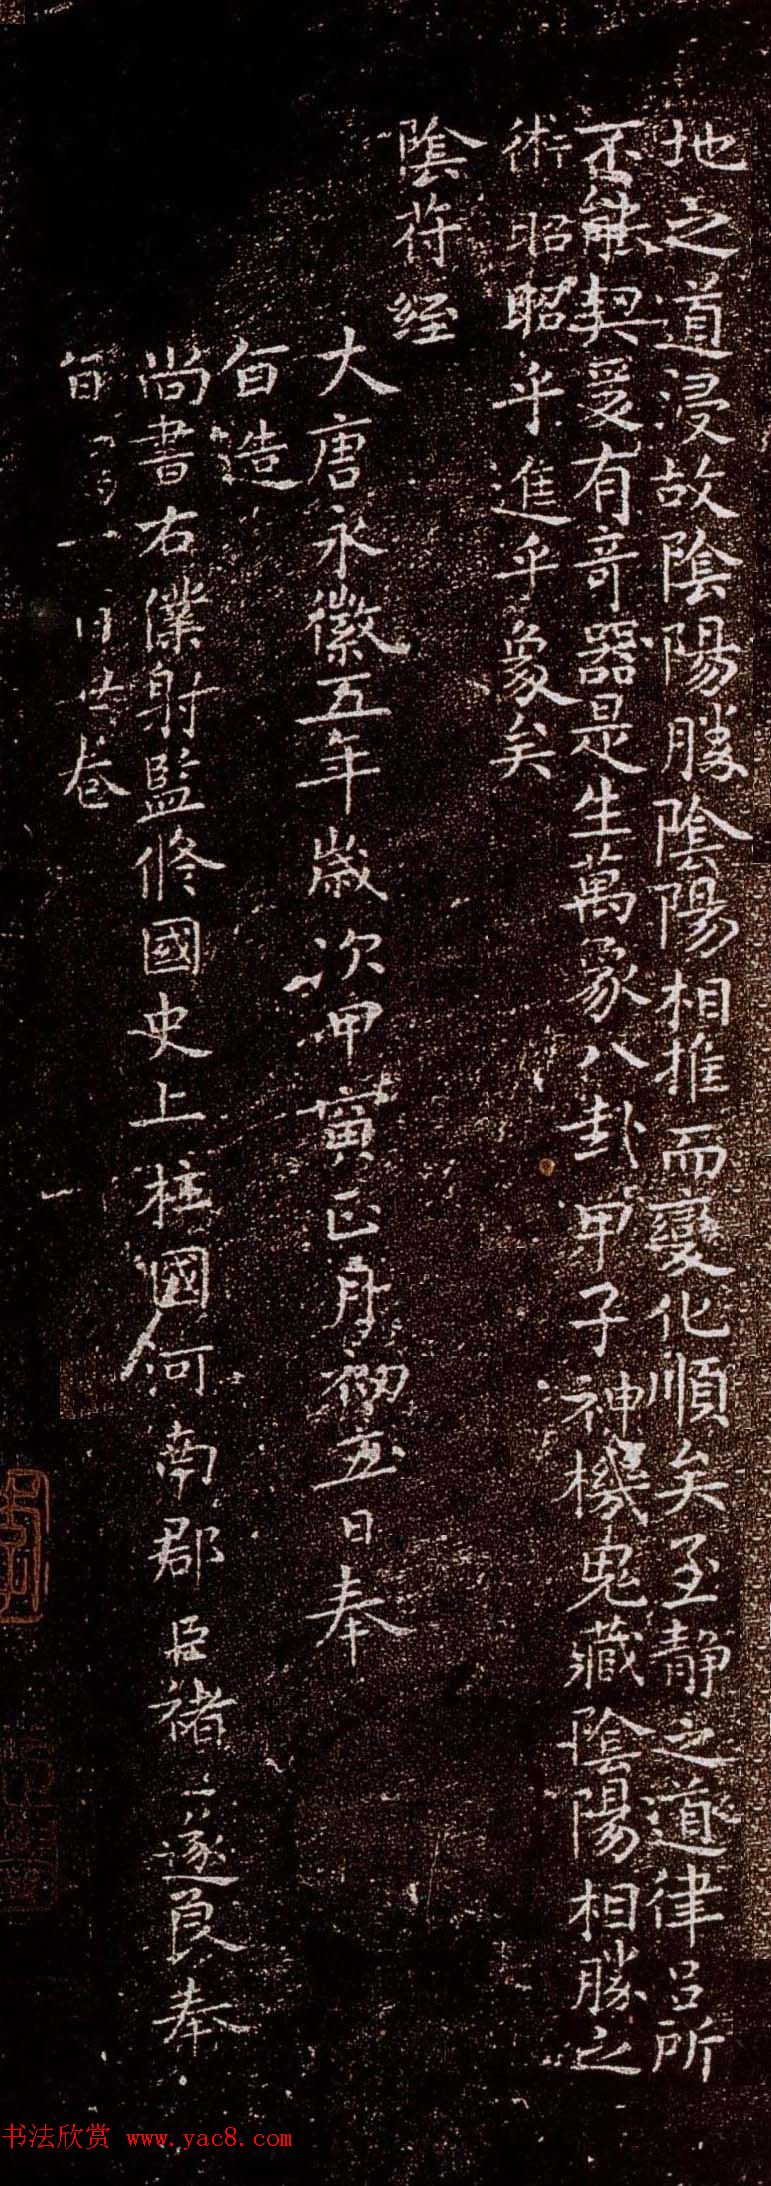 地之道浸故陰陽勝陰陽相推而變化順矣至靜之道律呂所
不能契爰有奇器是生萬象八卦甲子神機鬼藏陰陽相勝之
術昭昭乎進乎象矣
陰符經
大唐永徽五年歲次甲寅正月初五日奉
旨造
尚書右僕射監修國史上柱國河南郡臣褚遂良奉
旨 一百 卷
书法欣赏 www.yac8.com